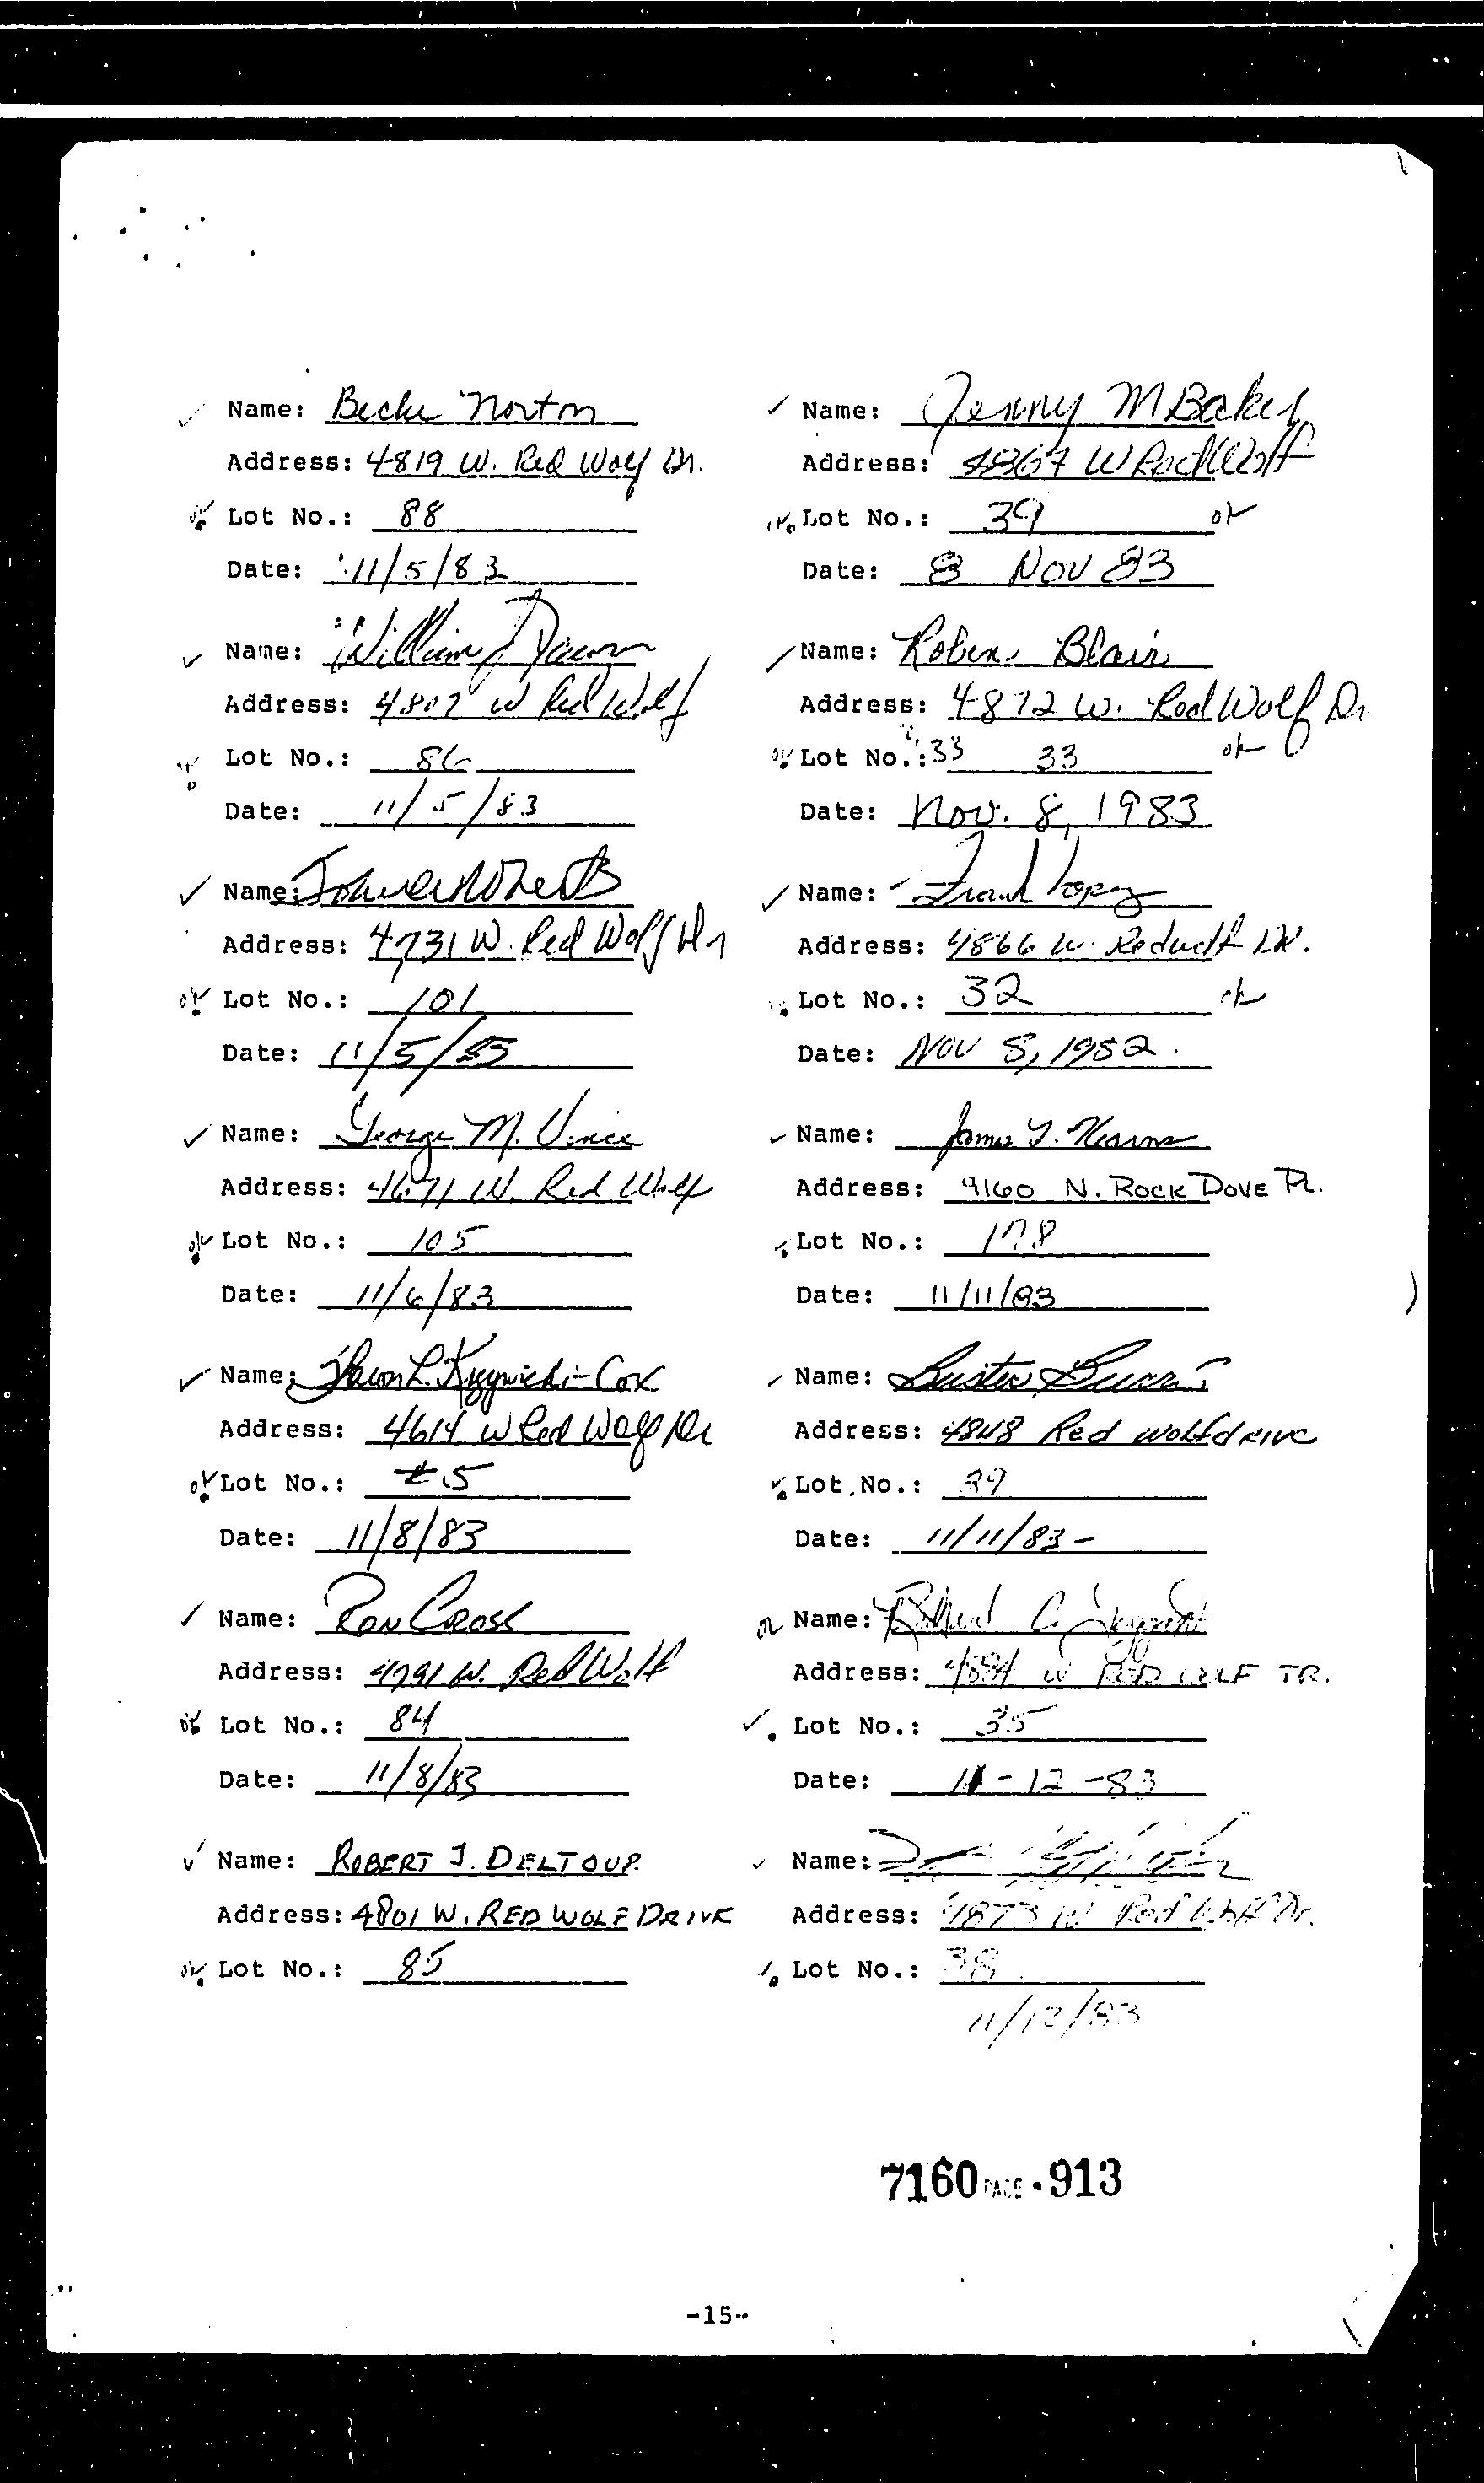 Name: Becke Norton
Address: 4819 W. Red Wolf Dr.
ok Lot No.: 88
Date: 11/5/83
Name: William J
Address: 4807 W Red Wolf
Lot No.: 86
Date: 11/5/83
Name:
Address: 4731 W. Red Wolf Dr
ok Lot No.: 101
Date: 11/5/83
Name: George M. Vince
Address: 4671 W. Red Wolf
ok Lot No.: 105
Date: 11/6/83
Name: Sharon L. -Cox
Address: 4614 W Red Wolf Dr
ok Lot No.: #5
Date: 11/8/83
Name: Ron Cross
Address: 4791 W. Red Wolf
ok Lot No.: 84
Date: 11/8/83
Name: ROBERT J. DELTOUR
Address: 4801 W. RED WOLF DRIVE
ok Lot No.: 85
Name: Jenny M Baker
Address: 4867 W Red Wolf
Lot No.: 39 ok
Date: 8 NOV 83
Name: Blair
Address: 4872 W. Red Wolf Dr.
ok Lot No.: 33 33 ok
Date: Nov. 8, 1983
Name: Frank Lopez
Address: 4866 W. Redwolf DR.
Lot No.: 32 ok
Date: NOV 8, 1982.
Name: James T. Kearns
Address: 9160 N. ROCK DOVE PL.
Lot No.: 178
Date: 11/11/83
Name: Buster
Address: 4848 Red wolf drive
Lot No.: 29
Date: 11/11/83-
ok Name: C.
Address: 4884 W RED WOLF TR.
Lot No.: 35
Date: 11-12-83
Name:
Address: 4873 W Red Wolf Dr.
Lot No.: 38
11/12/83
7160 PAGE 913
-15-